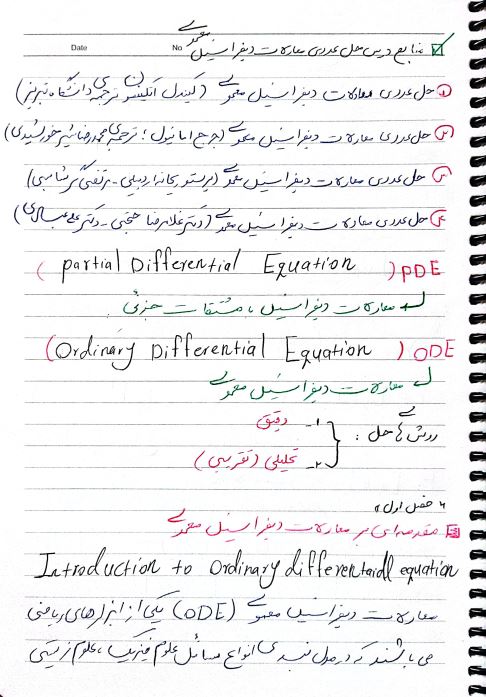 Date
No
منابع درس حل عددی معادلات دیفرانسیل معمولی
① حل عددی معادلات دیفرانسیل معمولی (کندال اتکینسون ترجمه‌ی دانشگاه تبریز)
② حل عددی معادلات دیفرانسیل معمولی (جرج امانیول؛ ترجمه‌ی محمدرضا شیرخورشیدی)
③ حل عددی معادلات دیفرانسیل معمولی (پرستو ریحانی اردبیلی - مرتضی گرشاسبی)
④ حل عددی معادلات دیفرانسیل معمولی (دکتر غلامرضا حجتی - دکتر علی عبادی)
PDE (partial Differential Equation)
معادلات دیفرانسیل با مشتقات جزئی
ODE (Ordinary Differential Equation)
معادلات دیفرانسیل معمولی
روش های حل :
۱- دقیق
۲- تحلیلی (تقریبی)
« فصل اول »
مقدمه ای بر معادلات دیفرانسیل معمولی
Introduction to Ordinary differentaidl equation
معادلات دیفرانسیل معمولی (ODE) یکی از ابزارهای ریاضی
می باشند که در مدل بندی انواع مسائل علوم فیزیک، علوم زیستی